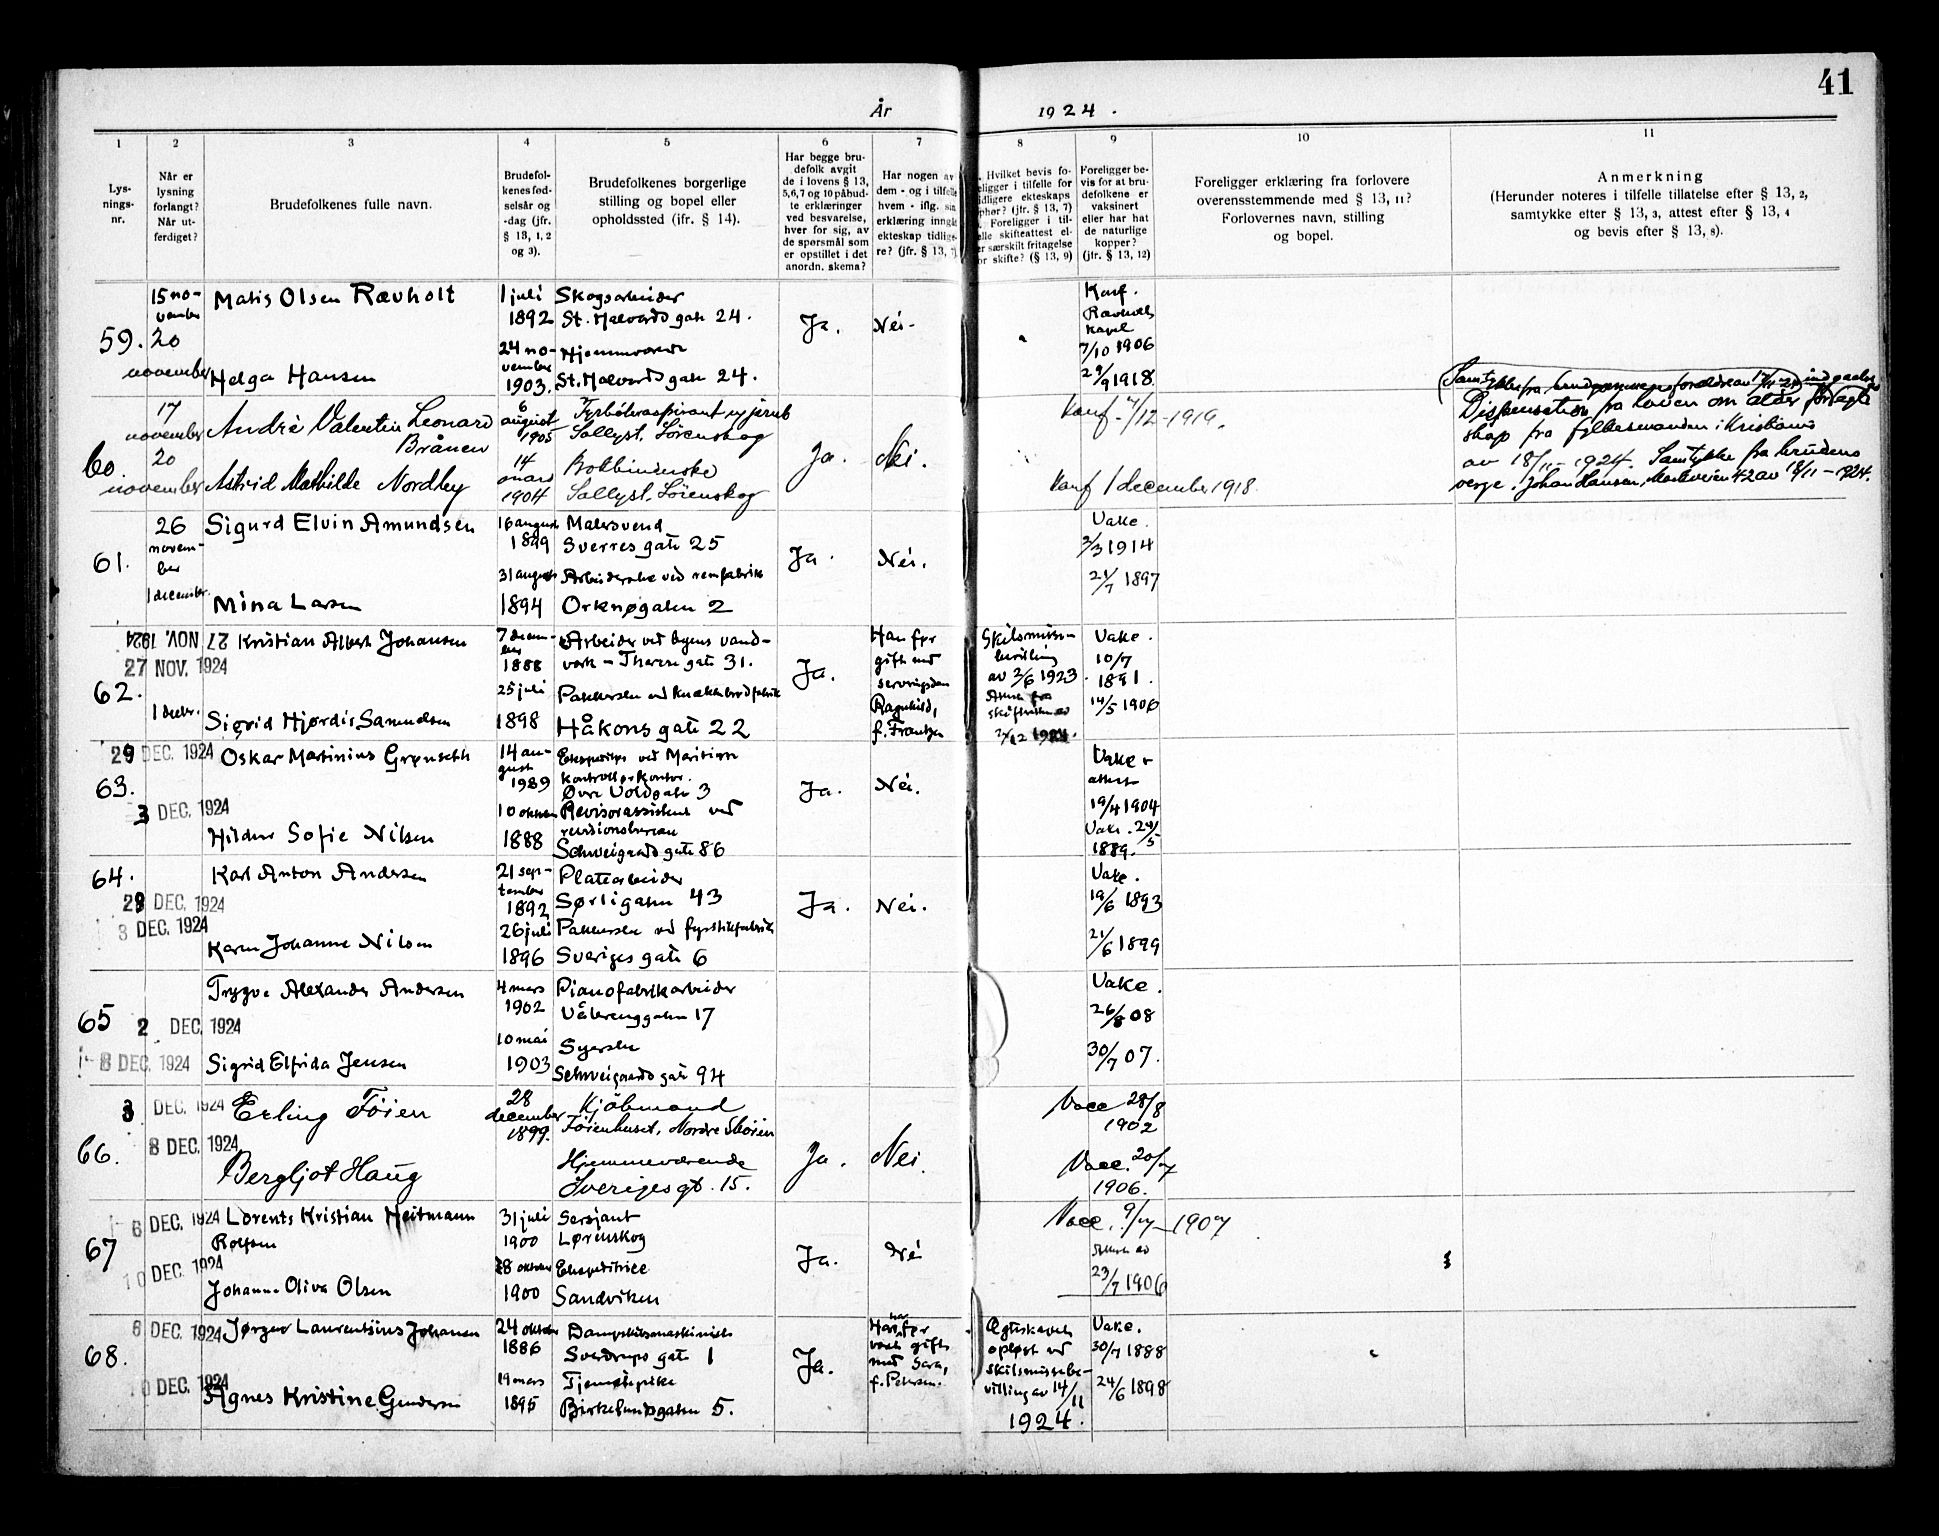 41
År 1924.
1 2 3 4 5 6 7 8 9 10 11
Lys-
nings-
nr.
Når er
lysning
forlangt?
Når ut-
ferdiget?
Brudefolkenes fulle navn.
Brudefol-
kenes fød-
selsår og
-dag (jfr.
§ 13, 1, 2
og 3).
Brudefolkenes borgerlige
stilling og bopel eller
opholdssted (ifr. § 14).
Har begge bru-
defolk avgit
de i lovens § 13,
5,6,7 og 10 påbud-
te erklæringer
ved besvarelse,
hver for sig, av
de spørsmål som
er opstillet i det
anordn. skema?
Har nogen av
dem - og i tilfelle
hvem - iflg. sin
erklæring inngåt
ekteskap tidlige-
re? (jfr. § 13, 7)
Hvilket bevis fo-
eligger i tilfelle for
idligere ekteskaps
phør? (jfr. § 13, 7)
Foreligger i til-
elle skifteattest el-
er særskilt fritagelse
or skifte? (§ 13, 9)
Foreligger be-
vis for at bru-
defolkene er
vaksinert
eller har hat
de naturlige
kopper?
(jfr. § 13, 12)
Foreligger erklæring fra forlovere
overensstemmende med § 13, 11?
Forlovernes navn, stilling
og bopel.
Anmerkning
(Herunder noteres i tilfelle tillatelse efter § 13, 2,
samtykke efter § 13, 3, attest efter § 13, 4
og bevis efter § 13, 8).
59.
15 no-
vember
20
november
Matis Olsen Rævholt
1 juli
1892
Skogsarbeider
St. Halvards gate 24.
Helga Hansen
24 no-
vember
1903.
Hjemmeværende
St. Halvards gate 24.
Ja.
Nei.
Konf.
kapel
7/10 1906
29/9 1918.
60
17
november
20
november
André Valentin Leonard
Brånen
6
august
1905
Fyrbøteraspirant
Sollyst, Lörenskog
Astrid Mathilde Nordby
14
1904
Bokbinderske
Sollyst, Lörenskog
Ja.
Nei.
Konf. 7/12-1919.
Konf 1 december 1918.
Samtykke fra brudgommens foreldre av
Dispensation fra loven om alder
skap fra fylkesmanden i Kristiania
av 18/11-1924. Samtykke fra brudens
verge, Johan Hansen, Markveien 42 av 18/11-1924.
61.
26
novem-
ber
1 december.
Sigurd Elvin Amundsen
16 august
1899
Malersvend
Sverres gate 25
Mina Larsen
31 august
1894
Arbeiderske ved remfabrik
Orknøgaten 2
Ja.
Nei.
Vake.
3/3 1914
21/7 1897
62.
27 NOV. 1924
27 NOV. 1924
1 decbr.
Kristian Albert Johansen
7 decem-
ber
1888
Arbeider ved byens vand-
verk - Therese gate 31.
Sigrid Hjørdis Samuelsen
25 juli
1898
Pakkerske ved knækkebrødfabrik
Håkons gate 22
Ja.
Han før
gift med
Ragnhild,
f. Frantzen
Skilsmisse-
bevilling
av 2/6 1923.
Attest fra
skifteretten av
Vake.
10/7
1891.
14/5 1906
63.
29 DEC. 1924
3 DEC. 1924
Oskar Martinius Grønseth
14 au-
gust
1989
Ekspeditør ved Maritim
kontrollørkontor.
Øvre Voldgate 3
Hildur Sofie Nilsen
10 oktober
1888
Revisorassistent ved
revisionsbureau
Schweigaards gate 86
Ja.
Nei.
Vake
attest
19/4 1904
Vake. 24/5
1889.
64.
29 DEC. 1924
3 DEC. 1924
Karl Anton Andersen
21 sep-
tember
1892
Platearbeider
Sørligaten 43
Karen Johanne Nilsen
26 juli
1896
Pakkerske ved fyrstikfabrik
Sveriges gate 6
Ja.
Nei.
Vake.
19/6 1893
21/6 1899
65
2 DEC. 1924
8 DEC. 1924
Trygve Alexander Andersen
4 mars
1902
Pianofabrikarbeider
Vålerenggaten 17
Sigrid Elfrida Jensen
10 mai
1903
Syerske
Schweigaards gate 94
Vake.
26/8 08
30/7 07.
66.
3 DEC. 1924
8 DEC. 1924
Erling Föien
28
december
1899.
Kjöbmand
Föienhuset, Nordre Skøien
Bergljot Haug
Hjemmeværende
Sveriges gt. 15.
Ja.
Nei.
Vacc 28/8
1902
Vacc. 20/7
1906.
67
6 DEC. 1924
10 DEC. 1924
Lorents Kristian Heitmann
Rolfsen
31 juli
1900
Sersjant
Lørenskog
Johanne Oliva Olsen
28 oktober
1900
Ekspeditrice
Sandviken
Ja.
Nei
Vacc. 9/7-1907
Attest av
23/7 1906
68.
6 DEC. 1924
10 DEC. 1924
Jørgen Laurentsius Johansen
24 oktober
1886
Dampskibsmaskinist
Sverdrups gate 1
Agnes Kristine Gundersen
19 mars
1895
Tjenestepike
Birkelundgaten 5.
Ja.
Han har før
vært gift
med Sara,
f. Petersen.
Egteskapet
opløst ved
skilsmissebe-
villing av 14/11
1924.
Vake.
30/7 1888
24/6 1898